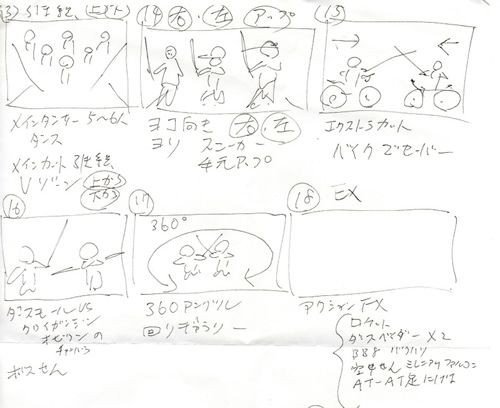 ⑬ 引き絵 (上がト)
⑭ 右・左 アップ
⑮
メインダンサー 5〜6人
ダンス
メインカット 引き絵
Vゾーン 上から
下から
ヨコ向き 右・左
ヨリ スニーカー
手元アップ
エクストラカット
バイクでセーバー
⑯
ダースモール VS
クワイガンジン
オビワンの
チャンバラ
ボスせん
⑰
360°
360アングル
回りギブラリー
⑱ EX
アクションEX
ロケット
ダースベイダー ×2
BB8
空中せん ミレニアムファルコン
AT-AT足に